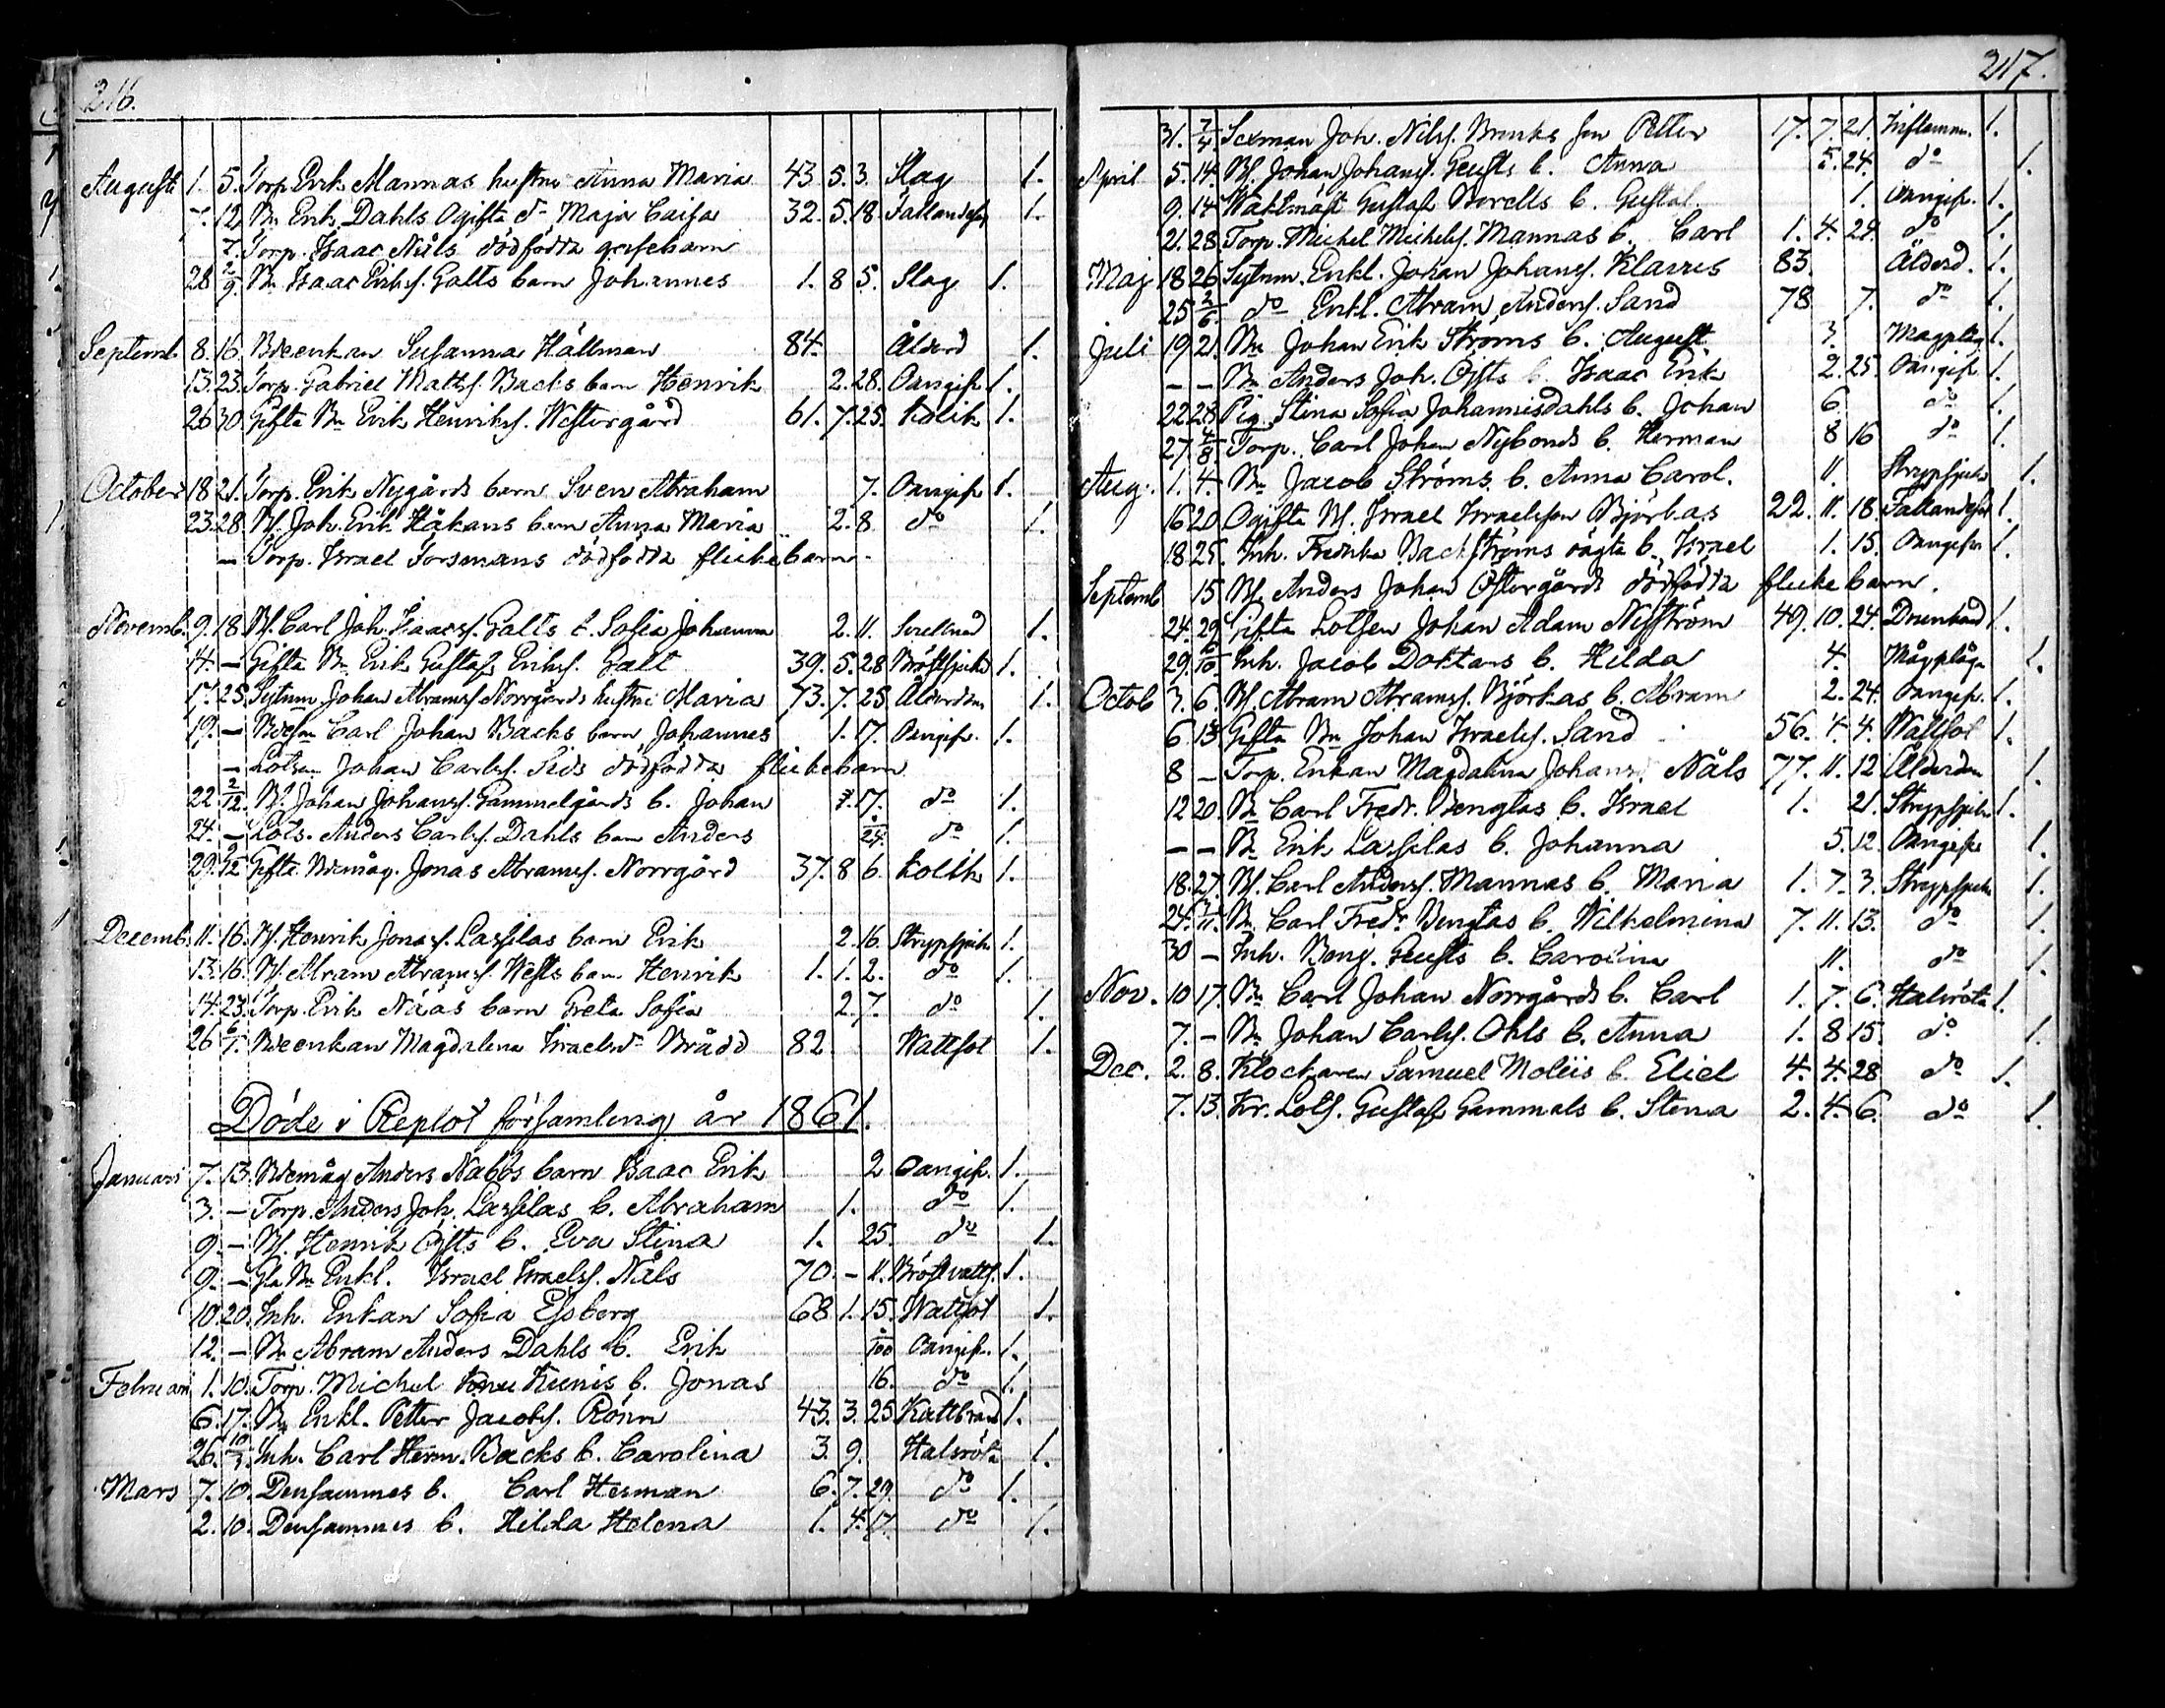 216.
Augusti 1. 5. Torp. Erik Mannas hustru Anna Maria 43. 5. 3. Slag 1.
7. 12. Bn Erik Dahls Ogifta dr Maja Caisa 32. 5. 18. Fallandesot 1.
7. Torp. Isaac Nåls dödfödda gossebarn
28 2/9. Bn Isaac Eriks. Galts barn Johannes 1. 8 5. Slag 1.
Septemb. 8. 16. Susanna Hällman 84. Ålderd 1.
13. 23. Torp. Gabriel Matts. Backs barn Henrik 2. 28. Oangifv. 1.
26 30. Gifta Bn Erik Henriks. Westergård 61. 7. 25. Kolik 1.
October 18 21. Torp. Erik Nygårds barn Sven Abraham 7. Oangifv. 1.
23. 28. Bs. Joh. Erik Håkans barn Anna Maria 2. 8. do 1.
— Torp. Israel Torsmans dödfödda flickebarn.
Novemb. 9. 18. Bs. Carl Joh. Isaacs. Galts b. Sofia Johanna 2. 11. 1.
14. — Gifta Bn Erik Gustafs Eriks. Galt 39. 5. 28 Bröstsjuka 1.
17. 25. Sytnm Johan Abrams. Norrgårds hustru Maria 73. 7. 25. Ålderdom 1.
19. — Carl Johan Backs barn Johannes 1. 17. Oangifv. 1.
— Lotsen Johan Carls. Sids dödfödda flickebarn
22 2/12. Bs. Johan Johans. Gammelgårds b. Johan 7. 17. do 1.
24. — Lots. Anders Carls. Dahls barn Anders 24. do 1.
29. 9/12 Gifta Bdemåg. Jonas Abrams. Norrgård 37. 8 6. Kolik 1.
Decemb. 11. 16. Bs. Henrik Jonas. Lassilas barn Erik 2. 16. Strypsjuka 1.
13. 16. Bs. Abram Abrams. Wests barn Henrik 1. 1. 2. do 1.
14. 23. Torp. Erik Nääs barn Greta Sofia 2. 7. do 1.
26 6/1. Magdalena Israelsdr Brådd 82. Wattsot 1.
Döde i Replot församling år 1861.
Januari 7. 13. Bdemåg Anders Nabbs barn Isaac Erik 2 Oangifv. 1.
3. — Torp. Anders Joh. Lassilas b. Abraham 1. do 1.
9. — Bs. Henrik Östs b. Eva Stina 1. 25. do 1.
9. — Gla Bn Enkl. Israel Israels. Nåls 70. — 11. Bröstvatts. 1.
10. 20. Inh. Enkan Sofia Esberg 68 1. 15. Wattsot 1.
12. — Bn Abram Anders Dahls b. Erik Oangifv. 1.
Februari 1. 10. Torp. Michel Kunis b. Jonas 16. do 1.
6. 17. Bn Enkl. Petter Jacobs. Rönn 43. 3. 25 Kallbrand 1.
26. 10/3. Inh. Carl Herm. Backs b. Carolina 3. 9. Halsröta 1.
Mars 7. 10. Densammes b. Carl Herman 6. 7. 29. do 1.
2. 10. Densammes b. Hilda Helena 1. 4. 17. do 1.
217.
31. 7/4 Sexman Joh. Nils. Brunks son Petter 17. 7. 21. Inflamm. 1.
April 5. 14. Bs. Johan Johans. Geusts b. Anna 5. 24. do 1.
9. 14 Waktmäst Gustaf Borells b. Gustaf. 1. Oangifv. 1.
21. 28 Torp. Michel Michels. Mannas b. Carl 1. 4. 24. do 1.
Maj 18 26 Sytnm. Enkl. Johan Johans. Klavus 83. Ålderd. 1.
25 2/6. do Enkl. Abram Anders. Sand 78 7. do 1.
Juli 19 21. Bn Johan Erik Ströms b. August 3. Magplåg 1.
— — Bn Anders Joh. Östs b. Isaac Erik 2. 25. Oangifv. 1.
22. 28 Pig. Stina Sofia Johannisdahls b. Johan 6. do 1.
27 4/8 Torp. Carl Johan Nybonds b. Herman 8 16 do 1.
Aug. 1. 4. Bn Jacob Ströms b. Anna Carol. 11. Strypsjuka 1.
16 20 Ogifta Bs. Israel Israelsson Björkas 22. 11. 18. Fallandesot 1.
18. 25. Inh. Fredrika Backströms oägta b. Israel 1. 15. Oangifven 1.
Septemb 15 Bs. Anders Johan Östergårds dödfödda flickebarn.
24. 29 Gifta Lotsen Johan Adam Nyström 49. 10. 24. Drunknad 1.
29. 6/10 Inh. Jacob Doktars b. Hilda 4. Magplåga 1.
Octob 3. 6. Bs. Abram Abrams. Björkas b. Abram 2. 24. Oangifv. 1.
6 13 Gifta Bn Johan Israels. Sand 56. 4. 4. Wattsot 1.
8 — Torp. Enkan Magdalena Johans. Nåls 77. 11. 12 Ålderdom 1.
12 20. Bn Carl Fredr. Benglas b. Israel 1. 21. Strypsjuka 1.
— — Bn Erik Lassilas b. Johanna 5. 12. Oangifv. 1.
18. 27. Bs. Carl Anders. Mannas b. Maria 1. 7. 3. Strypsjuka 1.
24. 3/11. Bn Carl Fredr. Benglas b. Wilhelmina 7. 11. 13. do 1.
30 — Inh. Benj. Geusts b. Carolina 11. do 1.
Nov. 10 17. Bn Carl Johan Norrgårds b. Carl 1. 7. 6. Halsröta 1.
7. — Bn Johan Carls. Ohls b. Anna 1. 8 15. do 1.
Dec. 2. 8. Klockaren Samuel Moliis b. Eliel 4. 4. 28 do 1.
7. 13. Kr. Lots. Gustaf Gammals b. Stina 2. 4. 6. do 1.